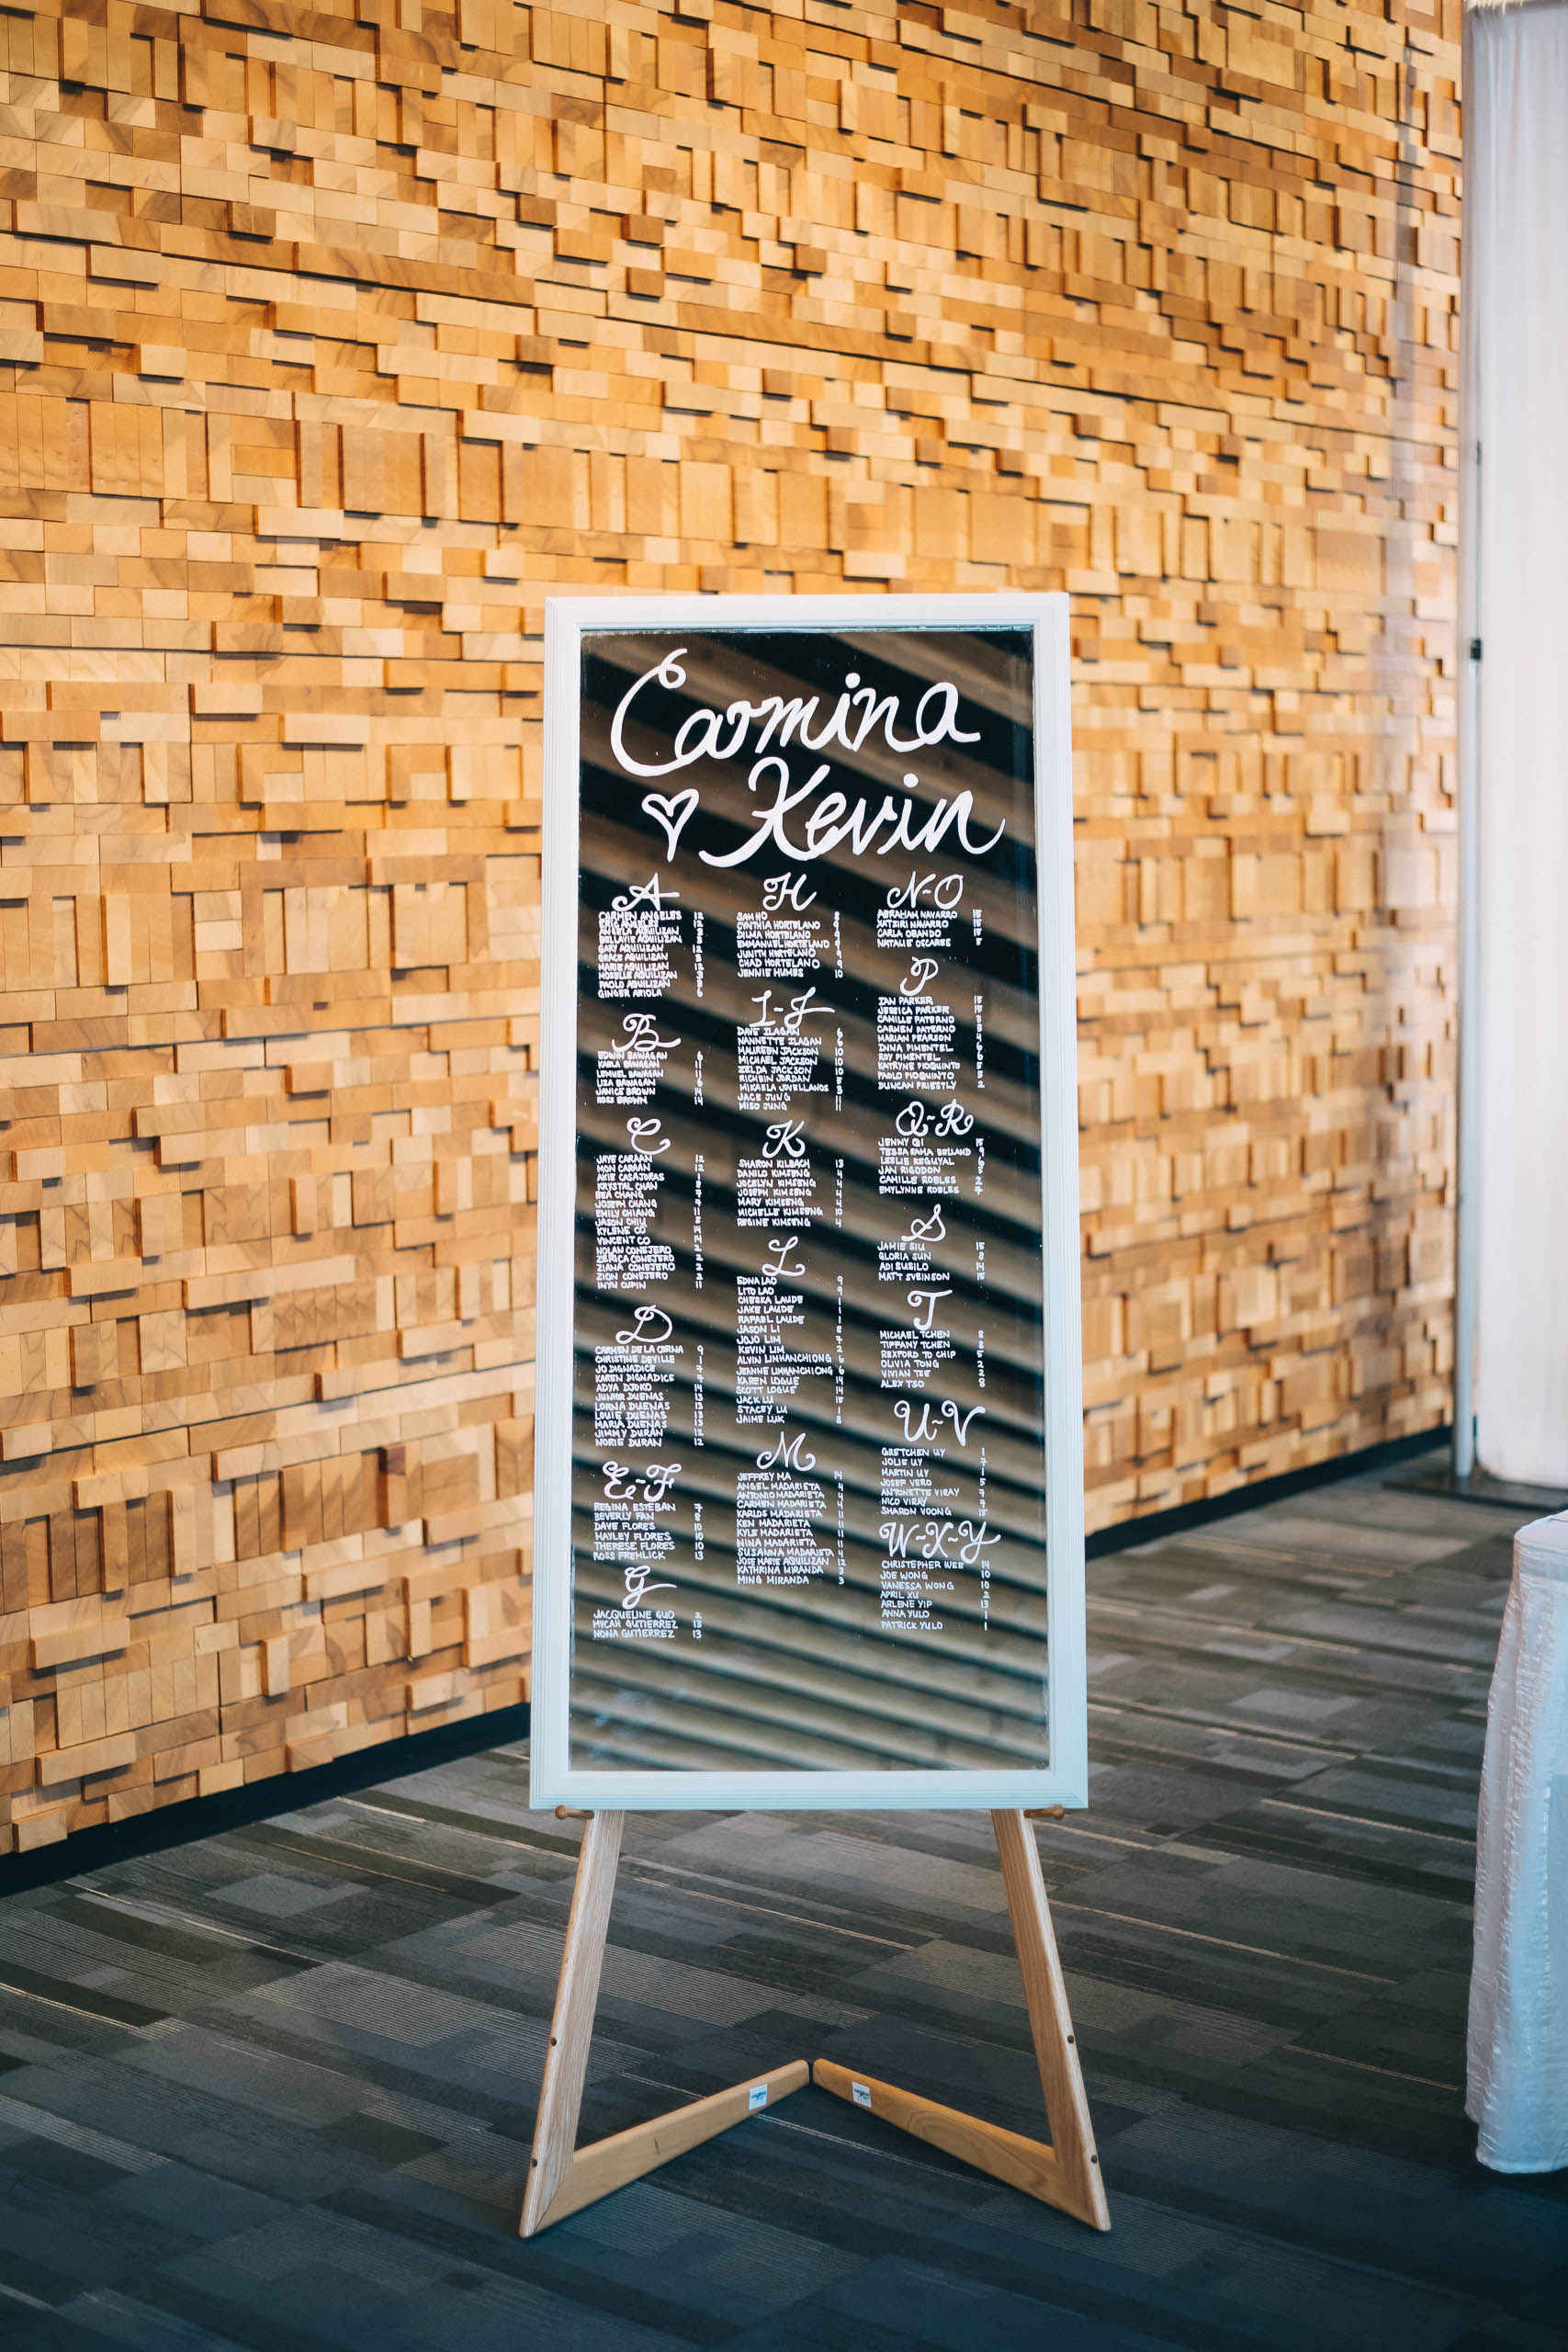 Carmina
♡ Kevin
A
CARMEN ANGELES 12
ERIC ANGELES 12
ANGELA AQUILIZAN 3
BELLAVIE AQUILIZAN 3
GARY AQUILIZAN 12
GRACE AQUILIZAN 3
MARIE AQUILIZAN 12
NOELLE AQUILIZAN 3
PAOLO AQUILIZAN 3
GINGER ARIOLA 6
B
EDWIN BAWAGAN 6
KARLA BAWAGAN 11
LEMUEL BAWAGAN 11
LIZA BAWAGAN 6
JANICE BROWN 14
ROSS BROWN 14
C
JAYE CARAAN 12
MON CARAAN 12
AKIE CASAJORAS 1
KRYSTAL CHAN 8
BEA CHANG 7
JOSEPH CHANG 7
EMILY CHIANG 11
JASON CHIU 5
KYLENE CO 14
VINCENT CO 14
NOLAN CONEJERO 2
ZERICA CONEJERO 2
ZIANA CONEJERO 2
ZION CONEJERO 2
INYU CUPIN 11
D
CARMEN DE LA CERNA 9
CHRISTINE DEVILLE 1
JO DIGNADICE 7
KAREN DIGNADICE 7
ADYA DJOKO 14
JUNIOR DUENAS 13
LORNA DUENAS 13
LOUIE DUENAS 13
MARIA DUENAS 13
JIMMY DURAN 12
NORIE DURAN 12
E-F
REGINA ESTEBAN 7
BEVERLY FAN 8
DAVE FLORES 10
HAYLEY FLORES 10
THERESE FLORES 10
ROSS FREHLICK 13
G
JACQUELINE GUO 2
MYCAH GUTIERREZ 13
NONA GUTIERREZ 13
H
SAM HO 8
CYNTHIA HORTELANO 9
DILMA HORTELANO 9
EMMANUEL HORTELANO 9
JUNITH HORTELANO 9
CHAD HORTELANO 9
JENNIE HUMES 10
I-J
DAVE ILAGAN 6
NANNETTE ILAGAN 6
MAUREEN JACKSON 10
MICHAEL JACKSON 10
ZELDA JACKSON 10
RICHEIN JORDAN 5
MIKAELA JOVELLANOS 3
JACE JUNG 11
MISO JUNG 11
K
SHARON KILBACH 13
DANILO KIMSENG 4
JOCELYN KIMSENG 4
JOSEPH KIMSENG 4
MARY KIMSENG 4
MICHELLE KIMSENG 10
REGINE KIMSENG 4
L
EDNA LAO 9
LITO LAO 9
CHESKA LAUDE 1
JAKE LAUDE 1
RAFAEL LAUDE 1
JASON LI 8
JOJO LIM 7
KEVIN LIM 2
ALVIN LINHANCHIONG 6
JEANNE LINHANCHIONG 6
KAREN LOGUE 14
SCOTT LOGUE 14
JACK LU 15
STACEY LU 11
JAIME LUK 8
M
JEFFREY MA 14
ANGEL MADARIETA 4
ANTONIO MADARIETA 4
CARMEN MADARIETA 4
KARLOS MADARIETA 11
KEN MADARIETA 11
KYLE MADARIETA 11
NINA MADARIETA 11
SUSANNA MADARIETA 4
JOSE MARIE AQUILIZAN 12
KATHRINA MIRANDA 3
MING MIRANDA 3
N-O
ABRAHAM NAVARRO 15
XATZIRI NAVARRO 15
CARLA OBANDO 15
NATALIE OSCARES 5
P
IAN PARKER 15
JESSICA PARKER 15
CAMILLE PATERNO 3
CARMEN PATERNO 3
MARIAN PEARSON 4
DINA PIMENTEL 6
ROY PIMENTEL 6
KATRYNE PIOQUINTO 5
PAOLO PIOQUINTO 5
DUNCAN PRIESTLY 2
Q-R
JENNY QI 15
TESSA RAMA BELLAND 9
LESLIE REGUYAL 6
JAN RIGODON 5
CAMILLE ROBLES 2
EMYLYNNE ROBLES 7
S
JAMIE SIU 15
GLORIA SUN 8
ADI SUSILO 14
MATT SVEINSON 15
T
MICHAEL TCHEN 8
TIFFANY TCHEN 8
REXFORD TO CHIP 5
OLIVIA TONG 2
VIVIAN TSE 2
ALEX TSO 8
U-V
GRETCHEN UY 1
JOLIE UY 7
MARTIN UY 1
JOSEF VERO 5
ANTONETTE VIRAY 7
NICO VIRAY 7
SHARON VOONG 15
W-X-Y
CHRISTOPHER WEE 14
JOE WONG 10
VANESSA WONG 10
APRIL XU 2
ARLENE YIP 13
ANNA YULO 1
PATRICK YULO 1